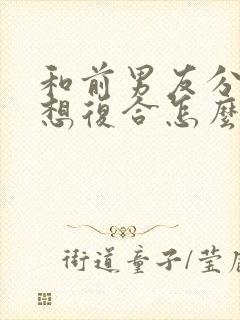 和前男友分
想復合怎麼
街道童子/莹